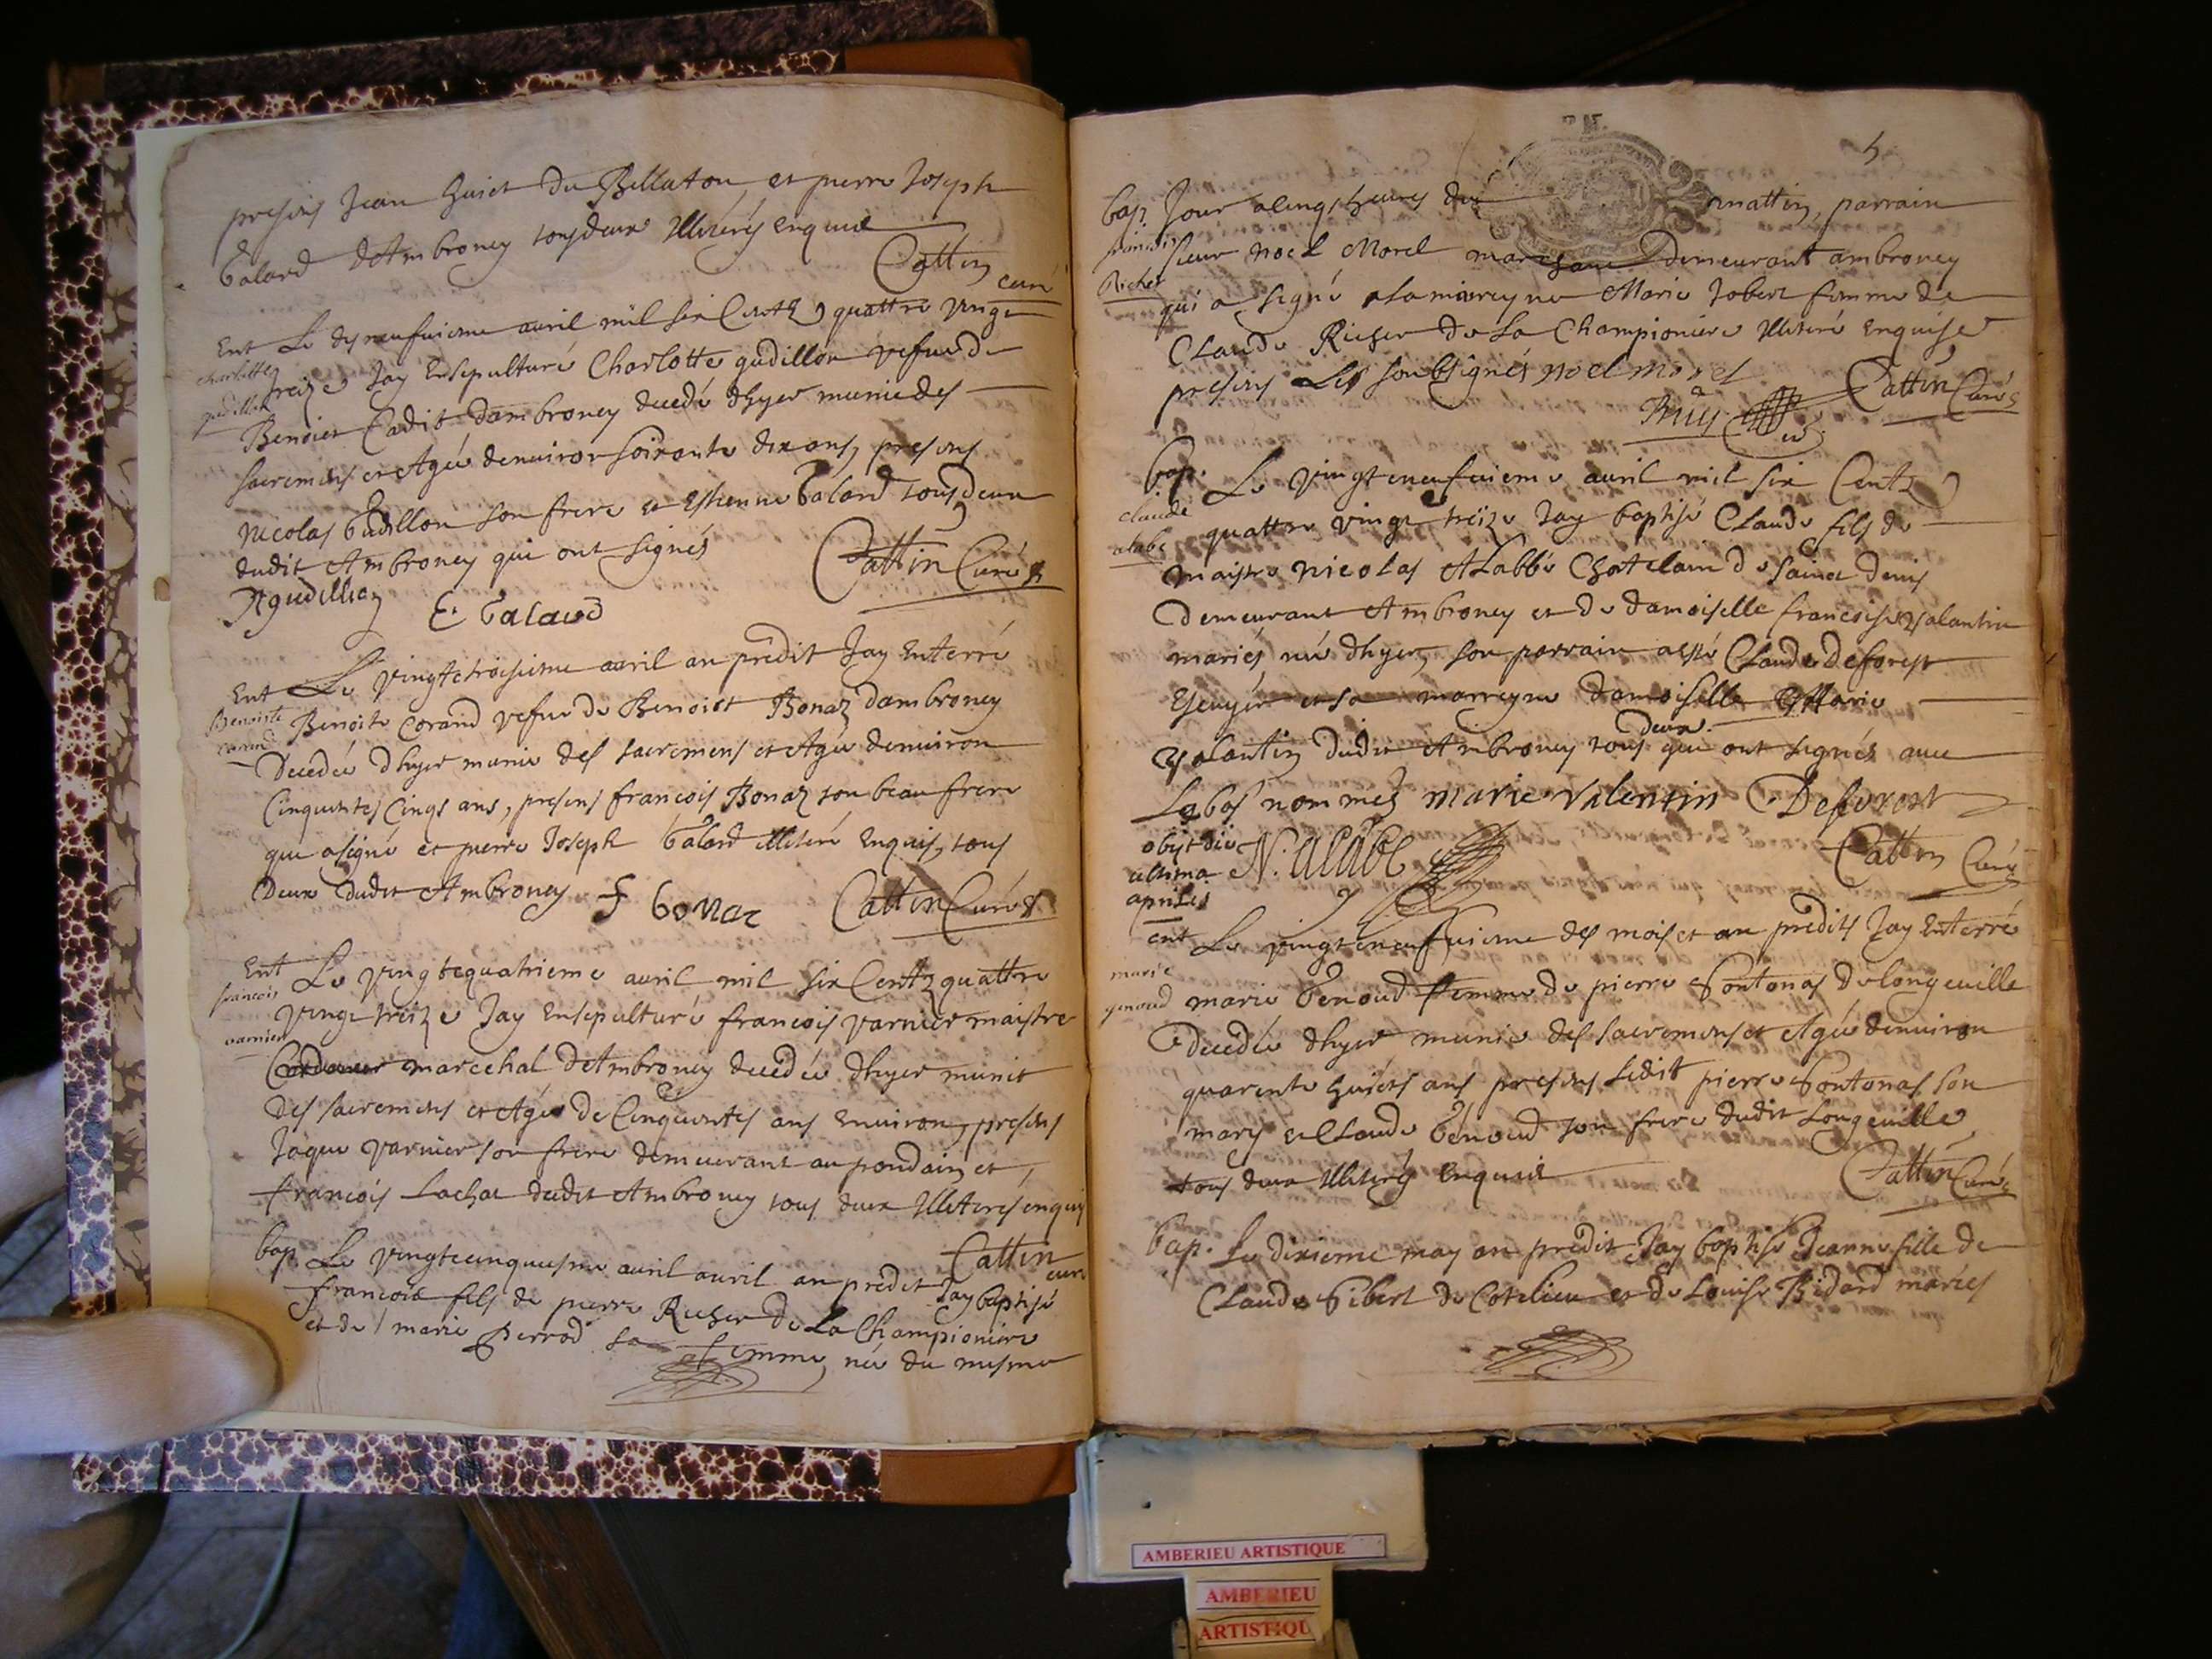 presens Jean Guiet du Bellaton et pierre Joseph
Galard dAmbroney tous deux Illiterés enquis
Cattin curé
Ent Le dixneufuieme auril mil six Centz quattre vingt
charlotte gudillon
treize Jay Ensepulturé Charlotte gudillon vefue de
Benoist Cadit dambroney decedé dhyer munie des
sacremens et Agée denuiron soixante dix ans, presens
Nicolas Gudillon son frere et Estienne Galard tous deux
dudit Ambroney qui ont signés
Cattin Curé
E. Galard
Ent Le vingt troisieme auril an predit Jay Enterré
Benoiste corand
Benoite Corand vefue de Benoist Bonaz dambroney
Decedée dhyer munie des sacremens et Agée denuiron
Cinquantes Cinqs ans, presens francois Bonaz son beau frere
qui a signé et pierre Joseph Galard illiteré enquis, tous
Deux dudit Ambroney
f bonaz
Cattin Curé
Ent Le vingtequatrieme auril mil six Centz quattre
francois varnier
vingt treize Jay Ensepulturé francois varnier maistre
marechal dAmbroney decedée dhyer munit
des sacremens et Agée de Cinquantes ans enuiron, presens
Jaque varnier son frere demeurant au pondain et
francois Lachat dudit Ambroney tous deux Illiterés enquis
Cattin curé
bap. Le vingtcinquiesme auril auril an predit Jay baptisé
francois fils de pierre Richer de La Championiere
et de marie Perrod sa femme, née du mesme
5
bap. Jour a cinqs heures du mattin, parrain
francois Richer
sieur noel Morel marchand demeurant ambroney
qui a signé et la marreyne Marie Jobert femme de
Claude Richer de La Championiere Illiteré enquise
presens Les soubsignés noel morel
Cattin Curé
bap. Le vingteneufuieme auril mil six Centz
claude alabe
quattre vingt treize Jay baptisé Claude fils de
maistre nicolas ALabbé Chatelain de Sainct denis
Demeurant Ambroney et de damoiselle francoise valantin
mariés née dhyer, son parrain a esté Claude Deforest
Escuyer et sa marreyne damoiselle Marie
valantin dudit Ambroney tous deux qui ont signés auec
Le bas nommez marie valentin C. Deforest
obijt die ultima aprilis
N. alabe
Cattin Curé
ent Le vingteneufuieme des mois et an predits Jay Enterré
marie genoud
marie Genoud femme de pierre Fontonas de longeuille
decedée dhyer munie des sacremens et Agée denuiron
quarente huicts ans presens Ledit pierre Fontonas son
marys et Claude Genoud son frere dudit Longeuille
tous deux Illiterés enquis
Cattin Curé
bap. Le dixieme may an predit Jay baptisé Jeanne fille de
Claude Gibert de Cotelieu et de Louise Bidard mariés
AMBERIEU ARTISTIQUE
AMBERIEU
ARTISTIQU